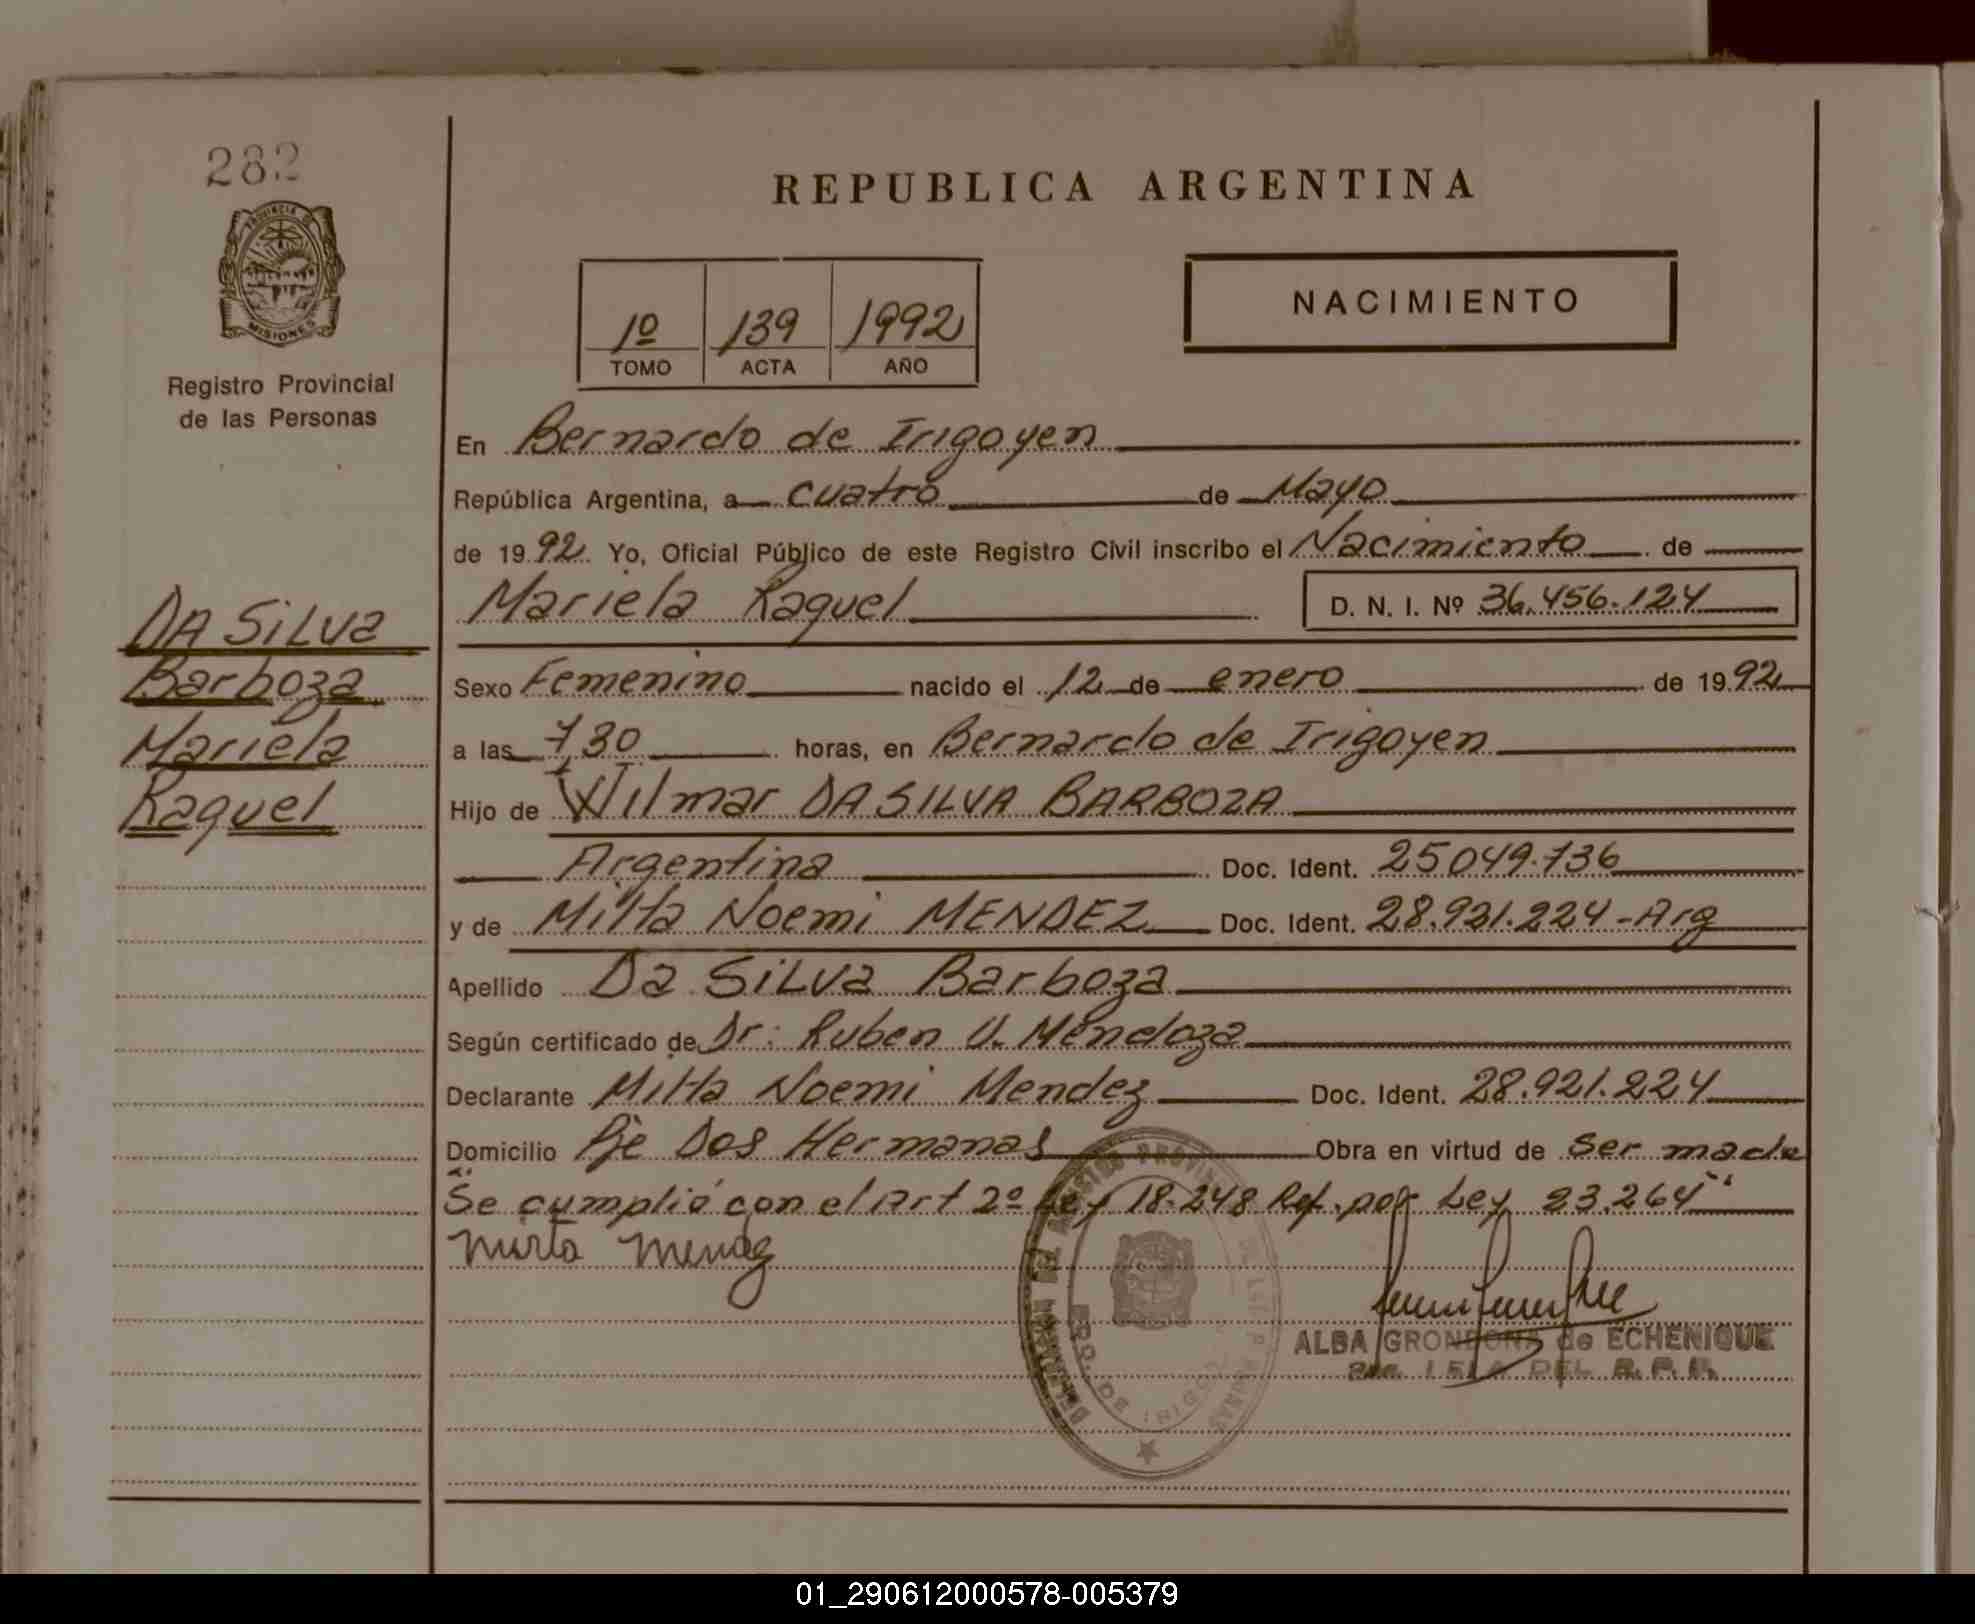 282
PROVINCIA DE
MISIONES
Registro Provincial
de las Personas
REPUBLICA ARGENTINA
1º 139 1992
TOMO ACTA AÑO
NACIMIENTO
En Bernardo de Irigoyen
República Argentina, a cuatro de Mayo
de 1992. Yo, Oficial Público de este Registro Civil inscribo el Nacimiento de
Mariela Raquel D. N. I. Nº 36.456.124
DA SiLVa
Barboza
Mariela
Raquel
Sexo Femenino nacido el 12 de enero de 1992
a las 730 horas, en Bernardo de Irigoyen
Hijo de Wilmar DA SILVA BARBOZA
Argentina Doc. Ident. 25049.736
y de Mirta Noemi MENDEZ Doc. Ident. 28.921.224-Arg
Apellido Da SiLVa Barboza
Según certificado de Dr: Ruben U. Mendoza
Declarante Mirta Noemi Mendez Doc. Ident. 28.921.224
Domicilio Pje Dos Hermanas Obra en virtud de ser madre
"Se cumplió con el Art 2º Ley 18.248 Ref. por Ley 23.264"
Mirta Mendez
ALBA GRONDONA de ECHENIQUE
DEL R. P. P.
01_290612000578-005379